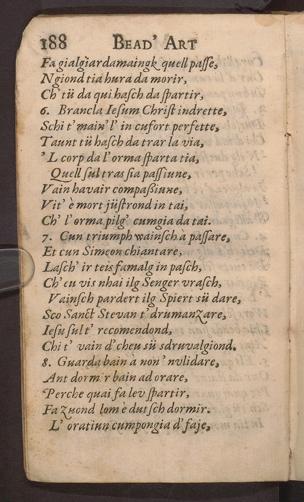 188 BEAD' ART
Fa gialgiardamaingk quell passe,
Ngiond tia hura da morir,
Ch' tü da qui hasch da spartir,
6. Brancla Iesum Christ indrette,
Schi t' main' l' in cufort perfette,
Taunt tü hasch da trar la via,
'L corp da l'orma sparta tia,
Quell sul tras sia passiune,
Vain havair compaßiune,
Vit' è mort jüstrond in tai,
Ch' l' orma pilg' cumgia da tai.
7. Cun triumph wainsch à passare,
Et cun Simeon chiantare,
Lasch' ir teis famalg in pasch,
Ch' eu vis nhai ilg Senger vrasch,
Vainsch pardert ilg Spiert sü dare,
Sco Sanct Stevan t' drumanzare,
Iesu sul t' recomendond,
Chi t' vain d' cheu sü sdruvalgiond.
8. Guarda bain à non' nvlidare,
Ant dormir bain ad orare,
Perche quai fa lev spartir,
Fa zuond lom è dutsch dormir.
L' oratiun cumpongia d' faje,